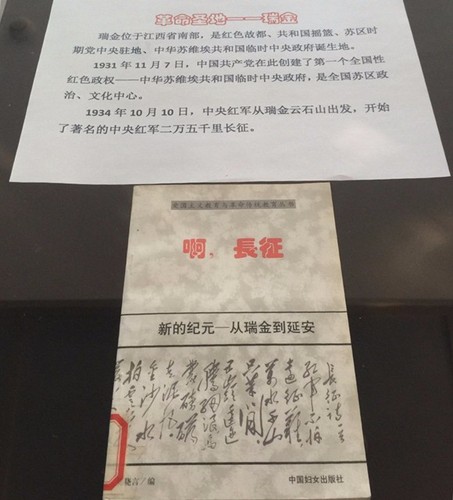 革命圣地——瑞金
瑞金位于江西省南部，是红色故都、共和国摇篮、苏区时
期党中央驻地、中华苏维埃共和国临时中央政府诞生地。
1931 年 11 月 7 日，中国共产党在此创建了第一个全国性
红色政权——中华苏维埃共和国临时中央政府，是全国苏区政
治、文化中心。
1934 年 10 月 10 日，中央红军从瑞金云石山出发，开始
了著名的中央红军二万五千里长征。
爱国主义教育与革命传统教育丛书
啊，長征
新的纪元—从瑞金到延安
長征诗一首
红军不怕
远征難
萬水千山
只等闲
五岭逶迤
腾细浪乌
蒙磅礴
走泥丸
金沙水
拍云
言/编
中国妇女出版社